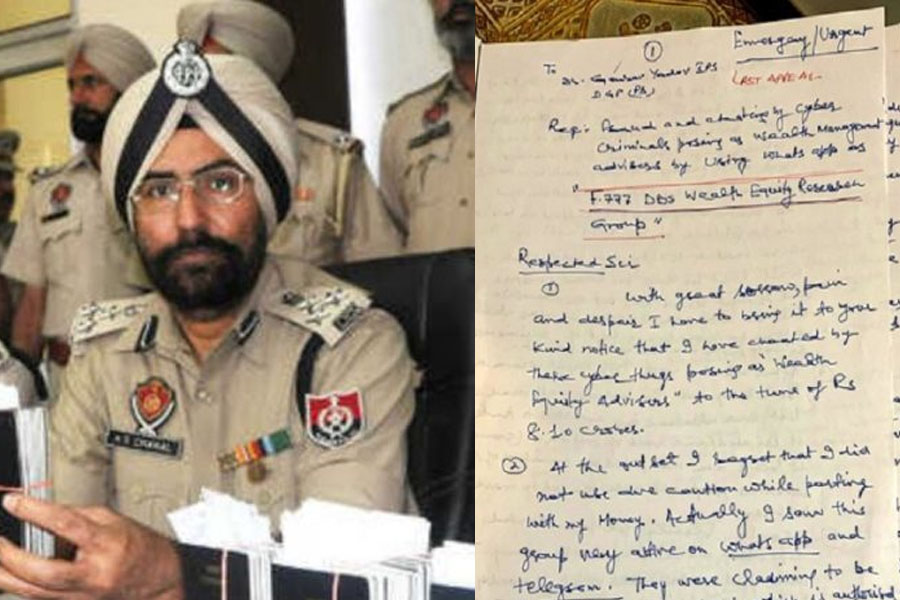 ①
Emergency/Urgent
To
Sh. Gaurav Yadav IPS
DGP (PB)
LAST APPEAL
Reg:- Fraud and cheating by cyber
criminals posing as Wealth Management
advisers by using whats app as
"F.777 DBS Wealth Equity Research
Group"
Respected Sir
①
With great sorrow, pain
and despair I have to bring it to your
kind notice that I have cheated by
these cyber thugs posing as "Wealth
Equity Advisers" to the tune of Rs
8.10 crores.
② At the outset I regret that I did
not use due caution while parting
with my Money. Actually I saw this
group very active on whats app and
telegram. They were claiming to be
authorised
A S CHAHAL